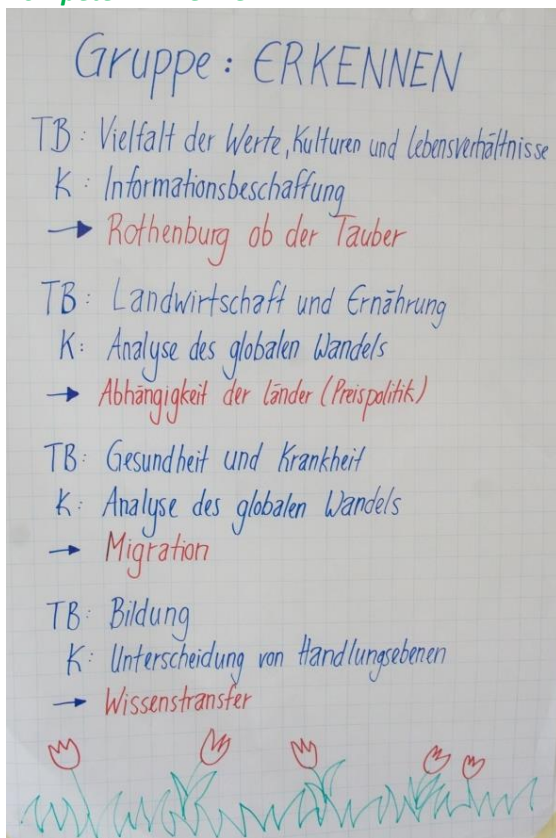 Gruppe: ERKENNEN
TB: Vielfalt der Werte, Kulturen und Lebensverhältnisse
K: Informationsbeschaffung
→ Rothenburg ob der Tauber
TB: Landwirtschaft und Ernährung
K: Analyse des globalen Wandels
→ Abhängigkeit der Länder (Preispolitik)
TB: Gesundheit und Krankheit
K: Analyse des globalen Wandels
→ Migration
TB: Bildung
K: Unterscheidung von Handlungsebenen
→ Wissenstransfer